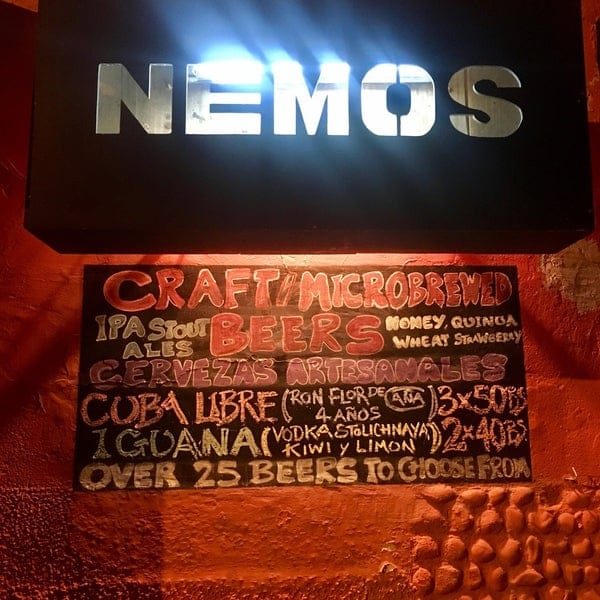 NEMOS
CRAFT // MICROBREWED
IPA STOUT BEERS HONEY, QUINUA
ALES WHEAT STRAWBERRY
CERVEZAS ARTESANALES
CUBA LIBRE (RON FLOR DE CAÑA) 3x50BS.
4 AÑOS
IGUANA (VODKA STOLICHNAYA) 2x40BS.
KIWI Y LIMON
OVER 25 BEERS TO CHOOSE FROM